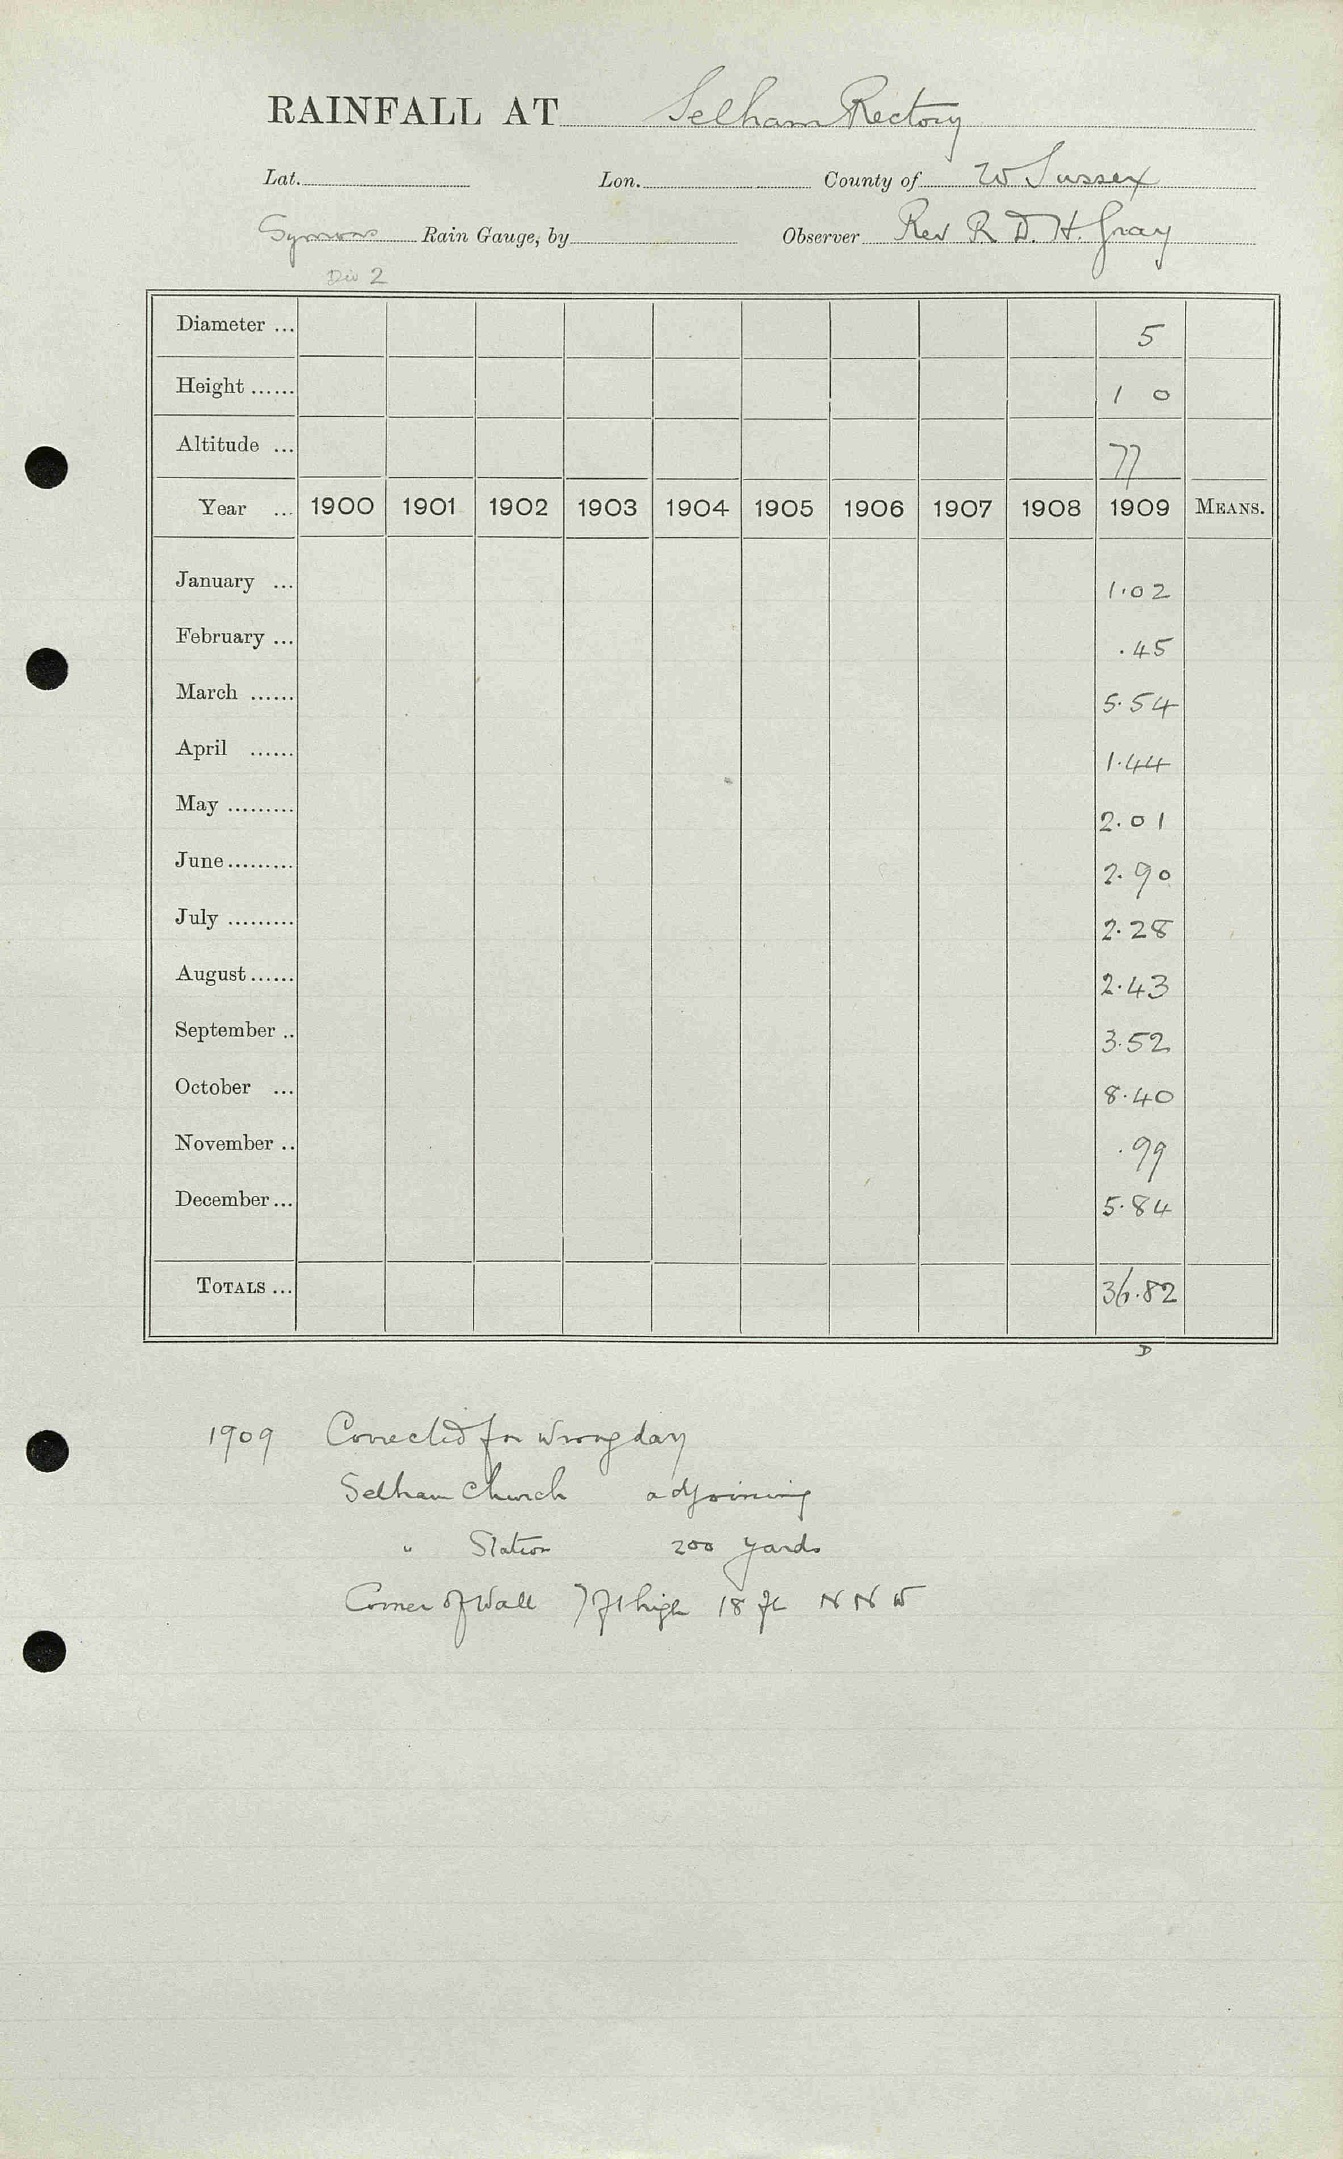 RAINFALL AT Selham Rectory
Lat. Lon. County of W Sussex
Symons Rain Gauge, by Observer Rev R D. H. Gray
Div 2
Diameter ... 5
Height ...... 1 0
Altitude ... 77
Year ... 1900 1901 1902 1903 1904 1905 1906 1907 1908 1909 MEANS.
January ... 1.02
February ... .45
March ...... 5.54
April ...... 1.44
May ......... 2.01
June ......... 2.90
July ......... 2.28
August ...... 2.43
September .. 3.52
October ... 8.40
November .. .99
December ... 5.84
TOTALS ... 36.82
D
1909 Corrected for wrong day
Selham Church adjoining
" Station 200 yards
Corner of Wall 7 ft high 18 ft N N W